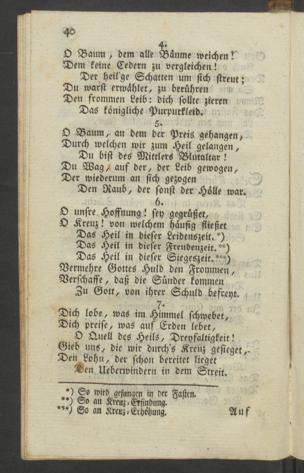 40
4.
O Baum, dem alle Bäume weichen!
Dem keine Cedern zu vergleichen!
Der heil'ge Schatten um sich streut;
Du warst erwählet, zu berühren
Den frommen Leib: dich sollte zieren
Das königliche Purpurkleid.
5.
O Baum, an dem der Preis gehangen,
Durch welchen wir zum Heil gelangen,
Du bist des Mitlers Blutaltar!
Du Wag, auf der, der Leib gewogen,
Der wiederum an sich gezogen
Den Raub, der sonst der Hölle war.
6.
O unsre Hoffnung! sey gegrüßet,
O Kreuz! von welchem häufig fließet
Das Heil in dieser Leidenszeit.*)
Das Heil in dieser Freudenzeit.**)
Das Heil in dieser Siegeszeit.***)
Vermehre Gottes Huld den Frommen,
Verschaffe, daß die Sünder kommen
Zu Gott, von ihrer Schuld befreyt.
7.
Dich lobe, was im Himmel schwebet,
Dich preise, was auf Erden lebet,
O Quell des Heils, Dreyfaltigkeit!
Gieb uns, die wir durch's Kreuz gesieget,
Den Lohn, der schon bereitet lieget
Den Ueberwindern in dem Streit.
*) So wird gesungen in der Fasten.
**) So an Kreuz-Erfindung.
***) So an Kreuz-Erhöhung.
Auf